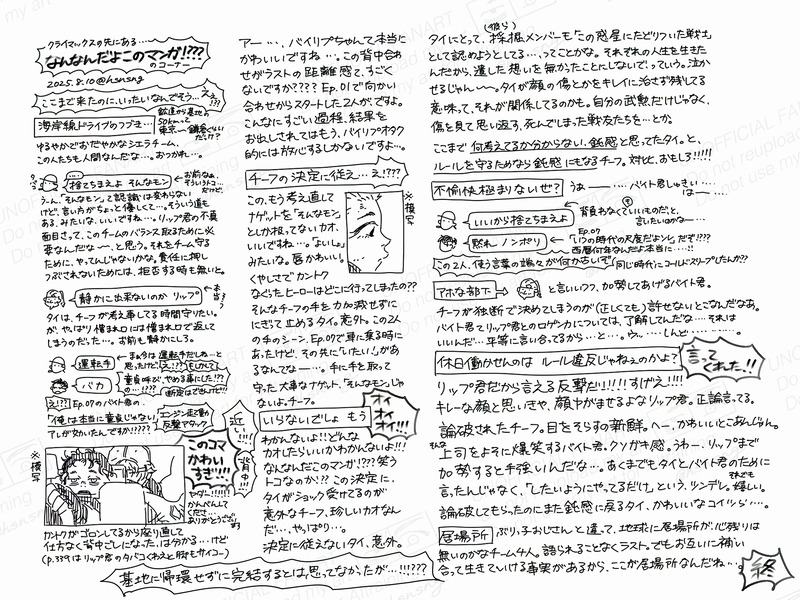 クライマックスの先にある…
なんなんだよこのマンガ!???
のコーナー
2025.8.10@hsnsng
ここまで来たのに、いったいなんでそう…ええ???
海岸線ドライブのつづき…
歓迎から基地まで50kmって
東京〜鎌倉ぐらいだけ?
ゆるやかでおだやかなシエラチーム、
この人たちも人間なんだな…。おつかれ…。
捨てちまえよ そんなモン
うん、「そんなモン」って認識は変わらない
けど、言い方がちょっと優しくて…。そういう道も
ある、みたいな。いいですね…。リップ君の不真
面目さって、このチームのバランス取るために必
要なんだな〜、と思う。それをチーム守る
ために、やってんじゃないかな。責任に押し
つぶされないためには、拒否する時も無いと。
静かに出来ないのか リップ
本当う
タイは、チーフが考え事してる時間守りたい。
が、やっぱり憎まれ口には憎まれ口で返して
しまうのだった…。お前も静かにしろ。
運転手
まぁ今は運転手だしね…と
思ったけど、え!??もしかして
バカ
童貞呼び、やめる事にした!??
…断定はできないけど
え!?? Ep.07のバイト君の、
「俺は本当に童貞じゃない」
アレが効いたんですか!????
エンジン走行動
反撃アタック
このコマ
かわい
すぎ!!!
近い!!!
背中!!!
ヤダー!!!!
かんべんして
くださ…
ありがとうございます
※模写
カントクがゴロンしてるから座り直して
仕方なく背中ごしになった、は分かる…けど
(p.339はリップ君のタバコくわえと肘もサイコー)
アー…、バイリプちゃんて本当に
かわいいですね…。この背中合わ
せがラストの距離感て、すごく
ないですか???? Ep.01で向かい
合わせからスタートした2人がですよ。
こんなにすごい過程、結果を
お出しされてはもう、バイリプオタク
的には放心するしかないですよ…。
チーフの決定に従え…え!???
この、もう考え直して
ナゲットを「そんなモン」
としか扱ってないカオ、
いいですね…。「よいしょ」
みたいな。唇かわいい。
くやしさでカントク
※模写
なぐったヒーローはどこに行ってしまったの??
そんなチーフの手を力加減せずに
にぎって止めるタイ。意外。この2人
の手のシーン、Ep.07で車に乗る時に
あったけど、その先に「いたい!」があ
るなんてな…。手に手を取って
守った大事なナゲット、「そんなモン」じゃ
ないよ、チーフ。
いらないでしょ もう
オイオイオイ!!!
わかんないよ!!どんな
カオしたらいいかわかんないよ!!!
なんなんだこのマンガ!???笑う
トコなのか!??この決定に
タイがショック受けてるのが
意外なチーフ、珍しいカオなん
だ…、やっぱり…。
決定に従えないタイ、意外。
基地に帰環せずに完結するとは、思ってなかったが…!!!???
(彼ら)
タイにとって、採掘メンバーも「この惑星にたどりついた戦士」
として認めようとしてる…、ってことかな。それぞれの人生を生きた
んだから、遺した想いを無かったことにしないで、っていう。泣か
せるじゃん〜。タイが顔の傷とかをキレイに治せず残してる
意味って、それが関係してるのかも。自分の武勲だけじゃなく、
傷を見て思い返す、死んでしまった戦友たちを…とか。
ここまで何考えてるか分からない、鈍感と思ってたタイ。と、
ルールを守るためなら鈍感にもなるチーフ。対比、おもしろ!!!!
不愉快極まりないぜ?
うぁー……、バイト君しゃきい……
は〜…。
いいから捨てちまえよ
背負わなくていいものだ、と
言いたいのな〜…
黙れ ノンポリ
Ep.07
「いつの時代の尺度だよソレ」だぞ!???
西暦何年なんだよ本当に……!!
この2人、使う言葉の端々が何か古いぞ
同じ時代にコールドスリープしたんか??
アホな部下
と言いつつ、加勢してあげるバイト君。
チーフが独断で決めてしまうのが(正しくても)許せないとこなんだなあ。
バイト君とリップ君とのロゲンカについては、了解してんだな…それは
いいんだ…平等に言い合ってるから…と…。うっ……しんど………。
休日働かせんのは ルール違反じゃねぇのかよ?
言ってくれった!!
リップ君だから言える反撃だ!!!!!すげえ!!!!
キレーな顔と思いきや、顔中がませるよなリップ君。正論言ってる。
論破されたチーフ。目をそらすの新鮮。へー、かわいいとこあんじゃん。
そんな
上司をよそに爆笑するバイト君。クソガキ感。うわー、リップまで
加勢すると手強いんだな…。あくまでもタイとバイト君のために
言ったんじゃなく、「したいようにやってるだけ」という、ツンデレ。
それでも
嬉しい。
論破してもらったのにまた鈍感に戻るタイ、かわいいなコイツら…。
居場所
ぶりっ子おじさんと違って、地球に居場所が、心残りは
無いのかなチーム4人。語られることなくラスト。でもお互いに補い
合って生きていける事実があるから、ここが居場所なんだね…。
終